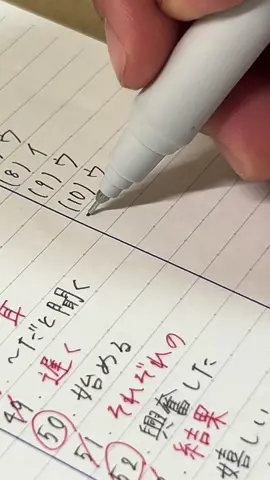 ウ
(8) イ
(9) ウ
(10) ウ
耳
〜だと聞く
49 ・遅く
50 ・始める
51 ・それぞれの
52 ・興奮した
・結果
嬉しい